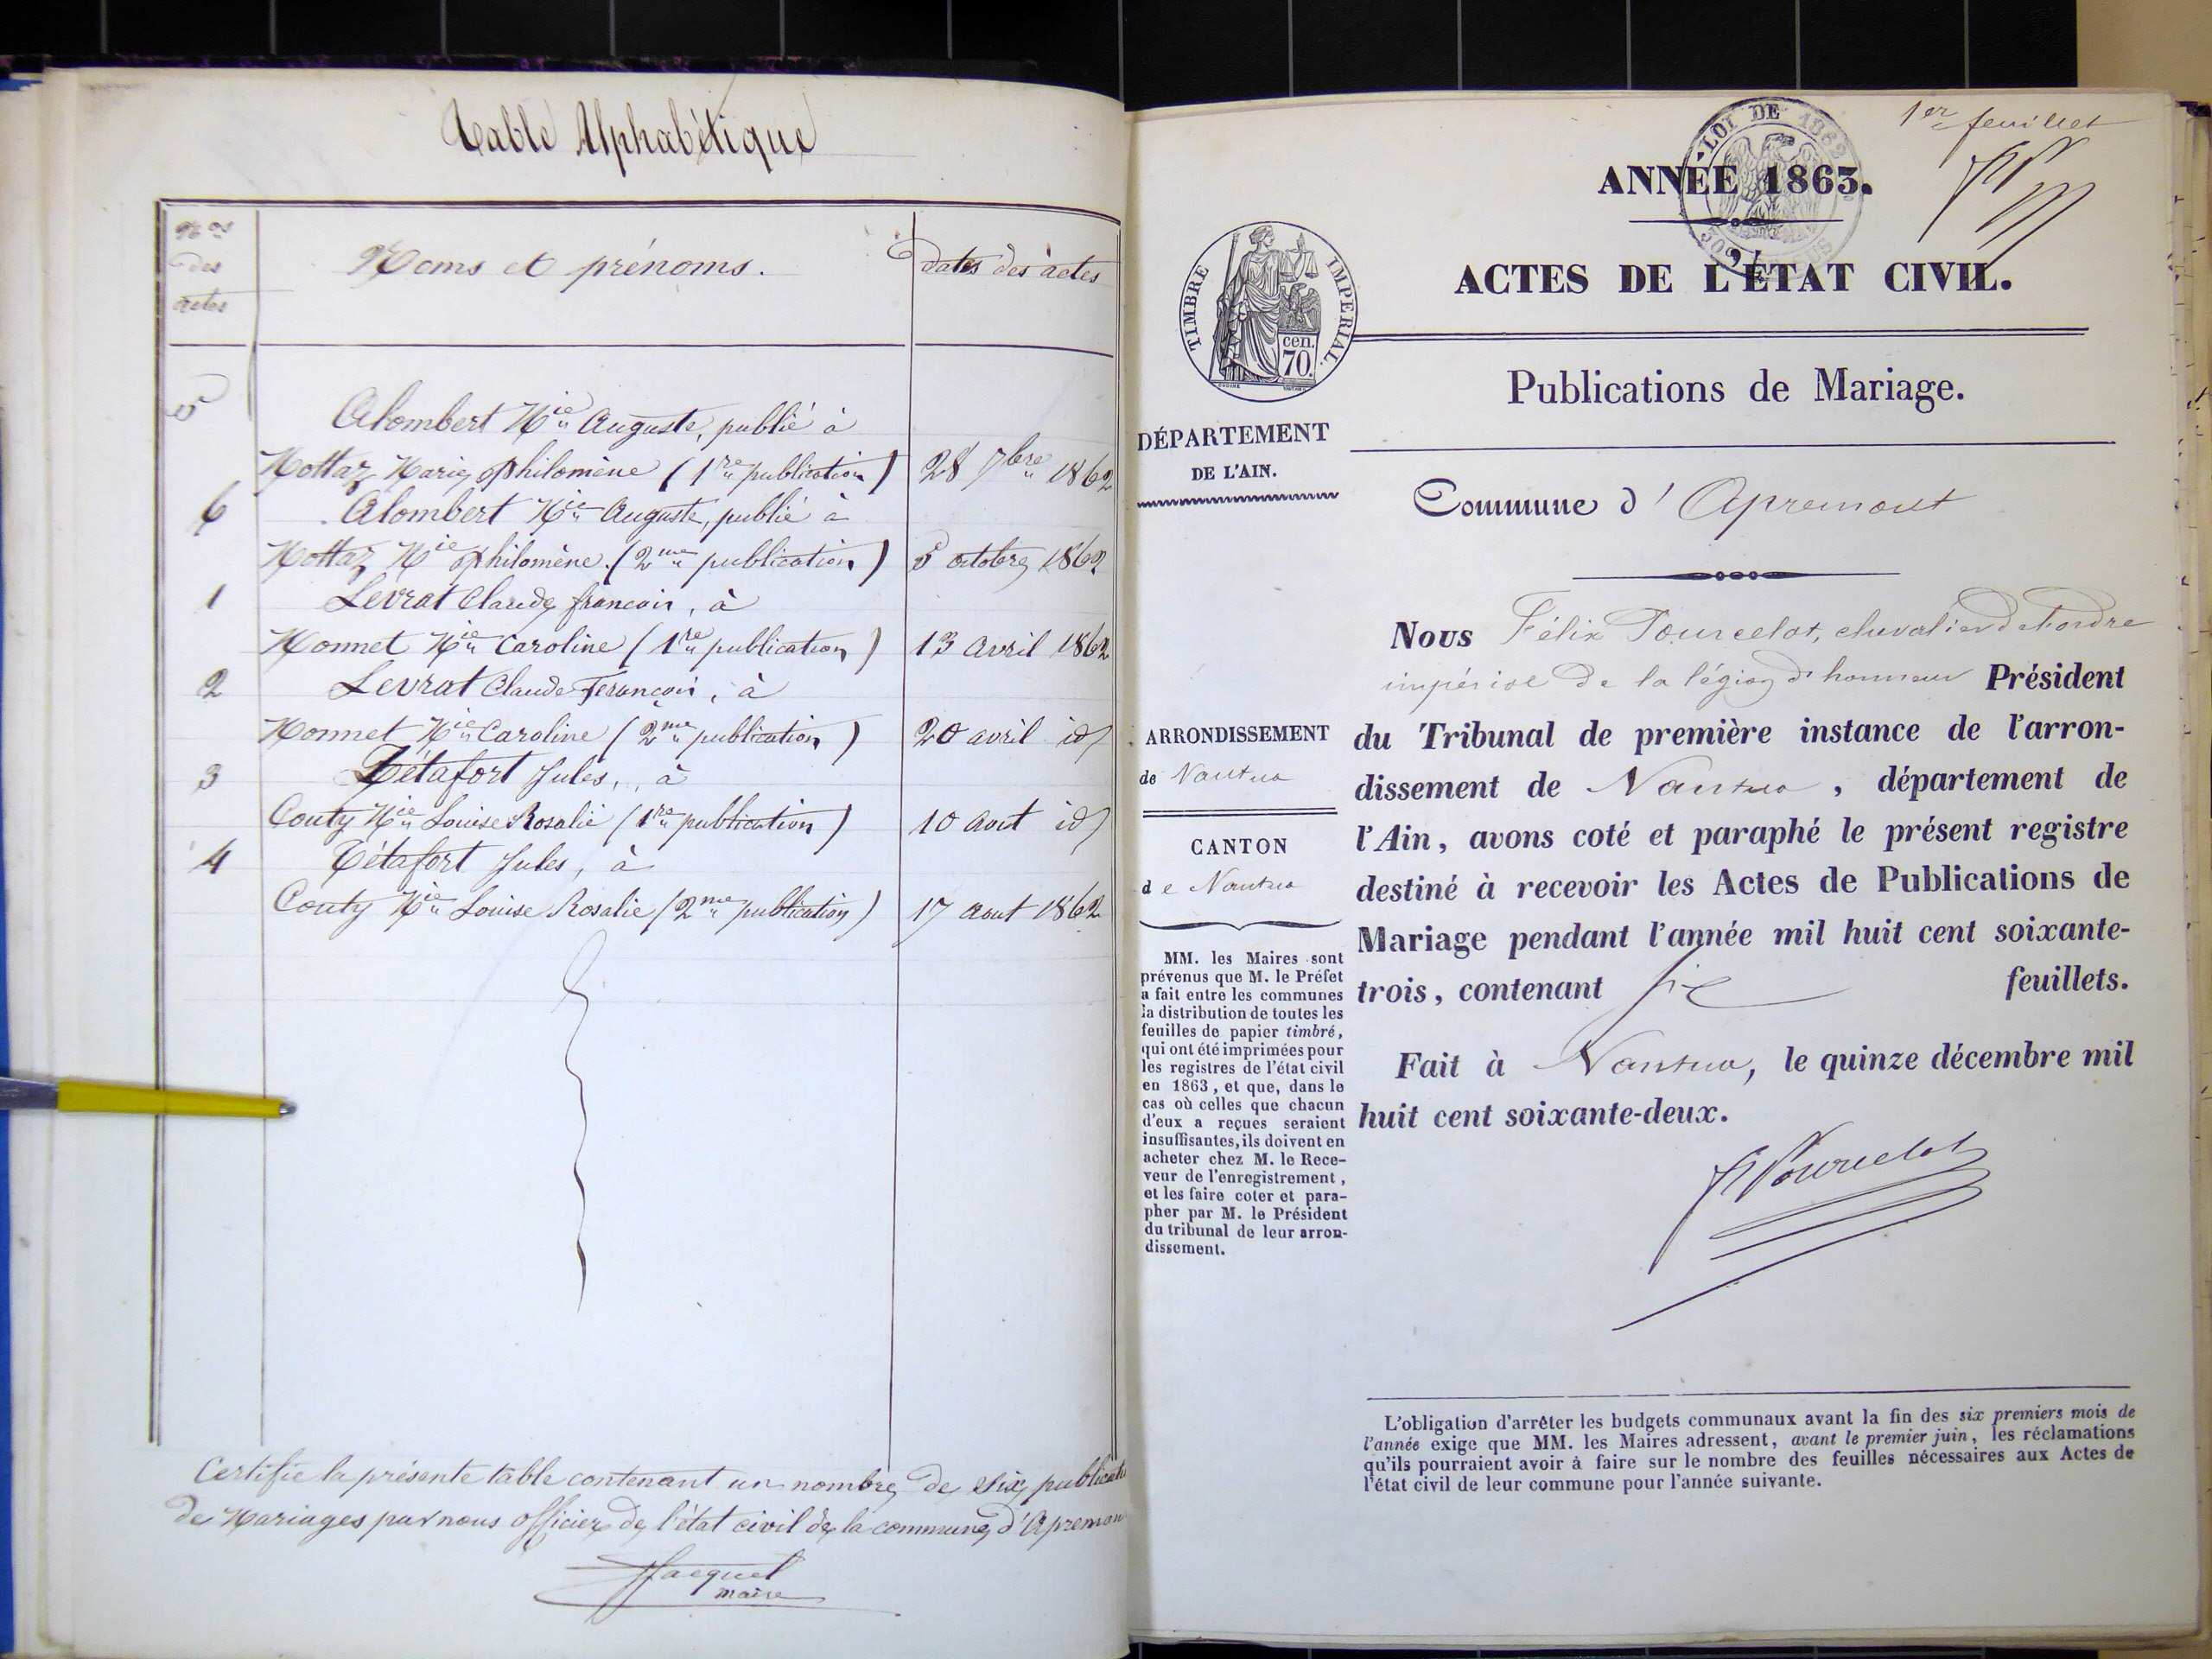 Table Alphabétique
Nos
des
actes
Noms et prénoms.
Dates des actes
5
Alombert Mie Auguste, publié à
Mottaz Marie Philomène (1re publication) 28 7bre 1862
6
Alombert Mie Auguste, publié à
Mottaz Mie Philomène. (2me publication) 5 octobre 1862
1
Levrat Claude françois, à
Monnet Mie Caroline (1re publication) 13 avril 1862
2
Levrat Claude François, à
Monnet Mie Caroline (2me publication) 20 avril id
3
Tétafort Jules, à
Couty Mie Louise Rosalie (1re publication) 10 aout id
4
Tétafort Jules, à
Couty Mie Louise Rosalie (2me publication) 17 aout 1862
Certifie la présente table contenant un nombre de six publicatio
de Mariages par nous officier de l'état civil de la commune d'Apremon
Jacquet
maire
1er feuillet
LOI DE 1862
ANNÉE 1863.
ACTES DE L'ÉTAT CIVIL.
TIMBRE IMPERIAL.
cen.
70.
Publications de Mariage.
DÉPARTEMENT
DE L'AIN.
Commune d'Apremont
ARRONDISSEMENT
de Nantua
CANTON
de Nantua
MM. les Maires sont
prévenus que M. le Préfet
a fait entre les communes
la distribution de toutes les
feuilles de papier timbré,
qui ont été imprimées pour
les registres de l'état civil
en 1863, et que, dans le
cas où celles que chacun
d'eux a reçues seraient
insuffisantes, ils doivent en
acheter chez M. le Rece-
veur de l'enregistrement,
et les faire coter et para-
pher par M. le Président
du tribunal de leur arron-
dissement.
Nous Félix Pourcelot, chevalier de l'ordre
impérial de la légion d'honneur Président
du Tribunal de première instance de l'arron-
dissement de Nantua, département de
l'Ain, avons coté et paraphé le présent registre
destiné à recevoir les Actes de Publications de
Mariage pendant l'année mil huit cent soixante-
trois, contenant six feuillets.
Fait à Nantua, le quinze décembre mil
huit cent soixante-deux.
F Pourcelot
L'obligation d'arrêter les budgets communaux avant la fin des six premiers mois de
l'année exige que MM. les Maires adressent, avant le premier juin, les réclamations
qu'ils pourraient avoir à faire sur le nombre des feuilles nécessaires aux Actes de
l'état civil de leur commune pour l'année suivante.